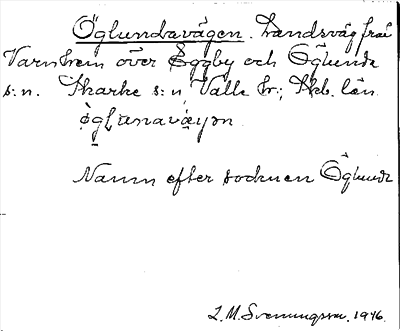 Öglundavägen. Landsväg från
Varnhem över Eggby och Öglunda
s:n. Skarke s:n, Valle hr.; Skb. län
Namn efter socknen Öglunda
L. M. Svenungsson. 1946.